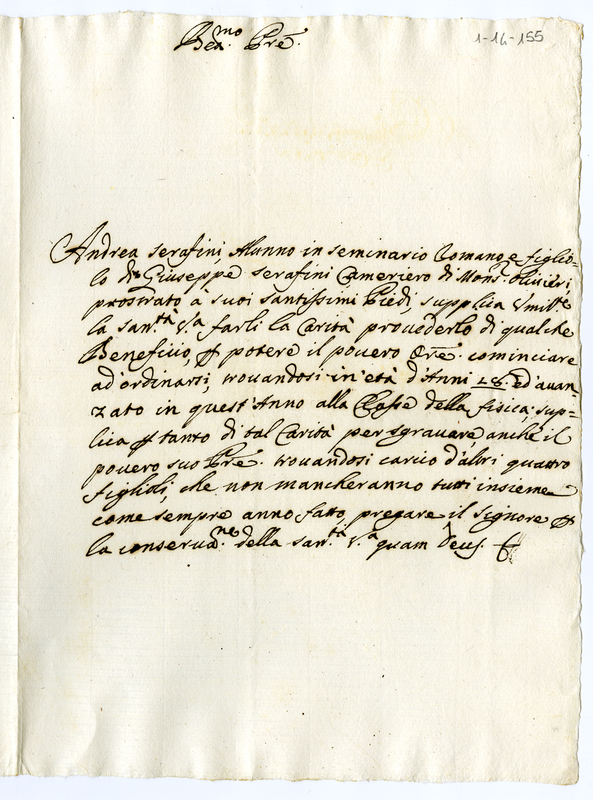 Bea.mo Pre.
1-16-155
Andrea Serafini Alunno in seminario Romano e figlio-
lo di Giuseppe Serafini Cameriero di Mons. Olivieri,
prostrato à suoi santissimi Piedi, supplica Vmilt.e
la San.tà V.a farli la Carità provederlo di qualche
Beneficio, p potere il povero Ore. cominciare
ad'ordinarsi, trovandosi in'età d'Anni 18. ed'avan-
zato in quest'Anno alla Classe della fisica; sup-
lica p tanto di tal Carità per sgravare anche il
povero suo Pre. trovandosi carico d'altri quattro
figlioli, che non mancheranno tutti insieme
come sempre anno fatto, pregare il Signore p
la conserva.ne della San.tà V.a quam Deus.